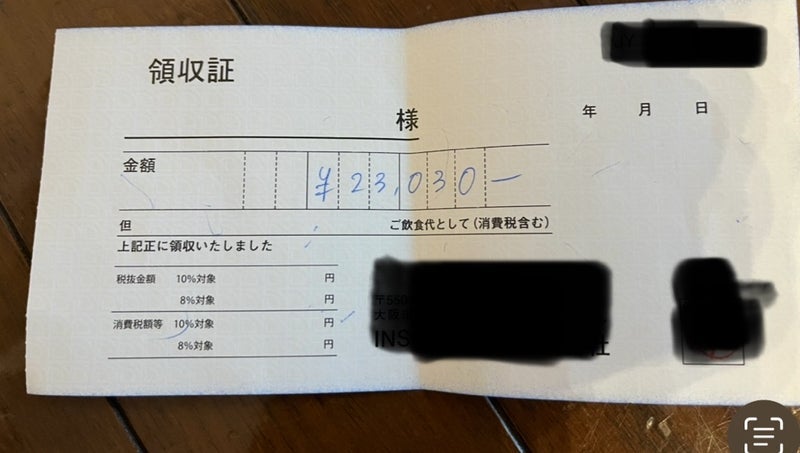 領収証
様
年 月 日
金額 ¥23,030-
但 ご飲食代として(消費税含む)
上記正に領収いたしました
税抜金額 10%対象 円
8%対象 円
消費税額等 10%対象 円
8%対象 円
〒550
大阪
INS
社